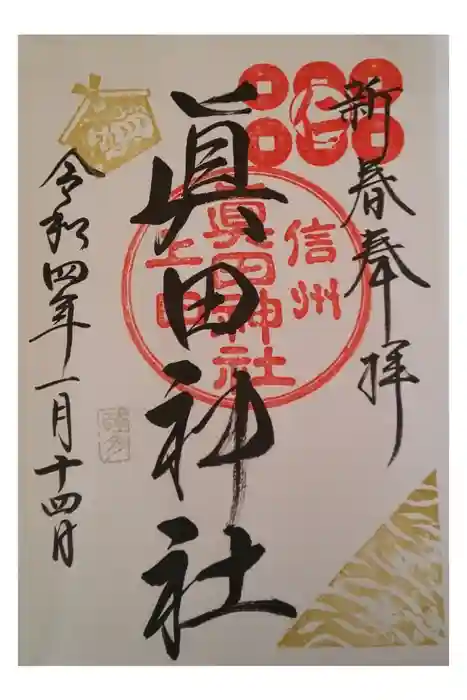 新春奉拝
信州
眞田神社
上田
眞田神社
令和四年一月十四日